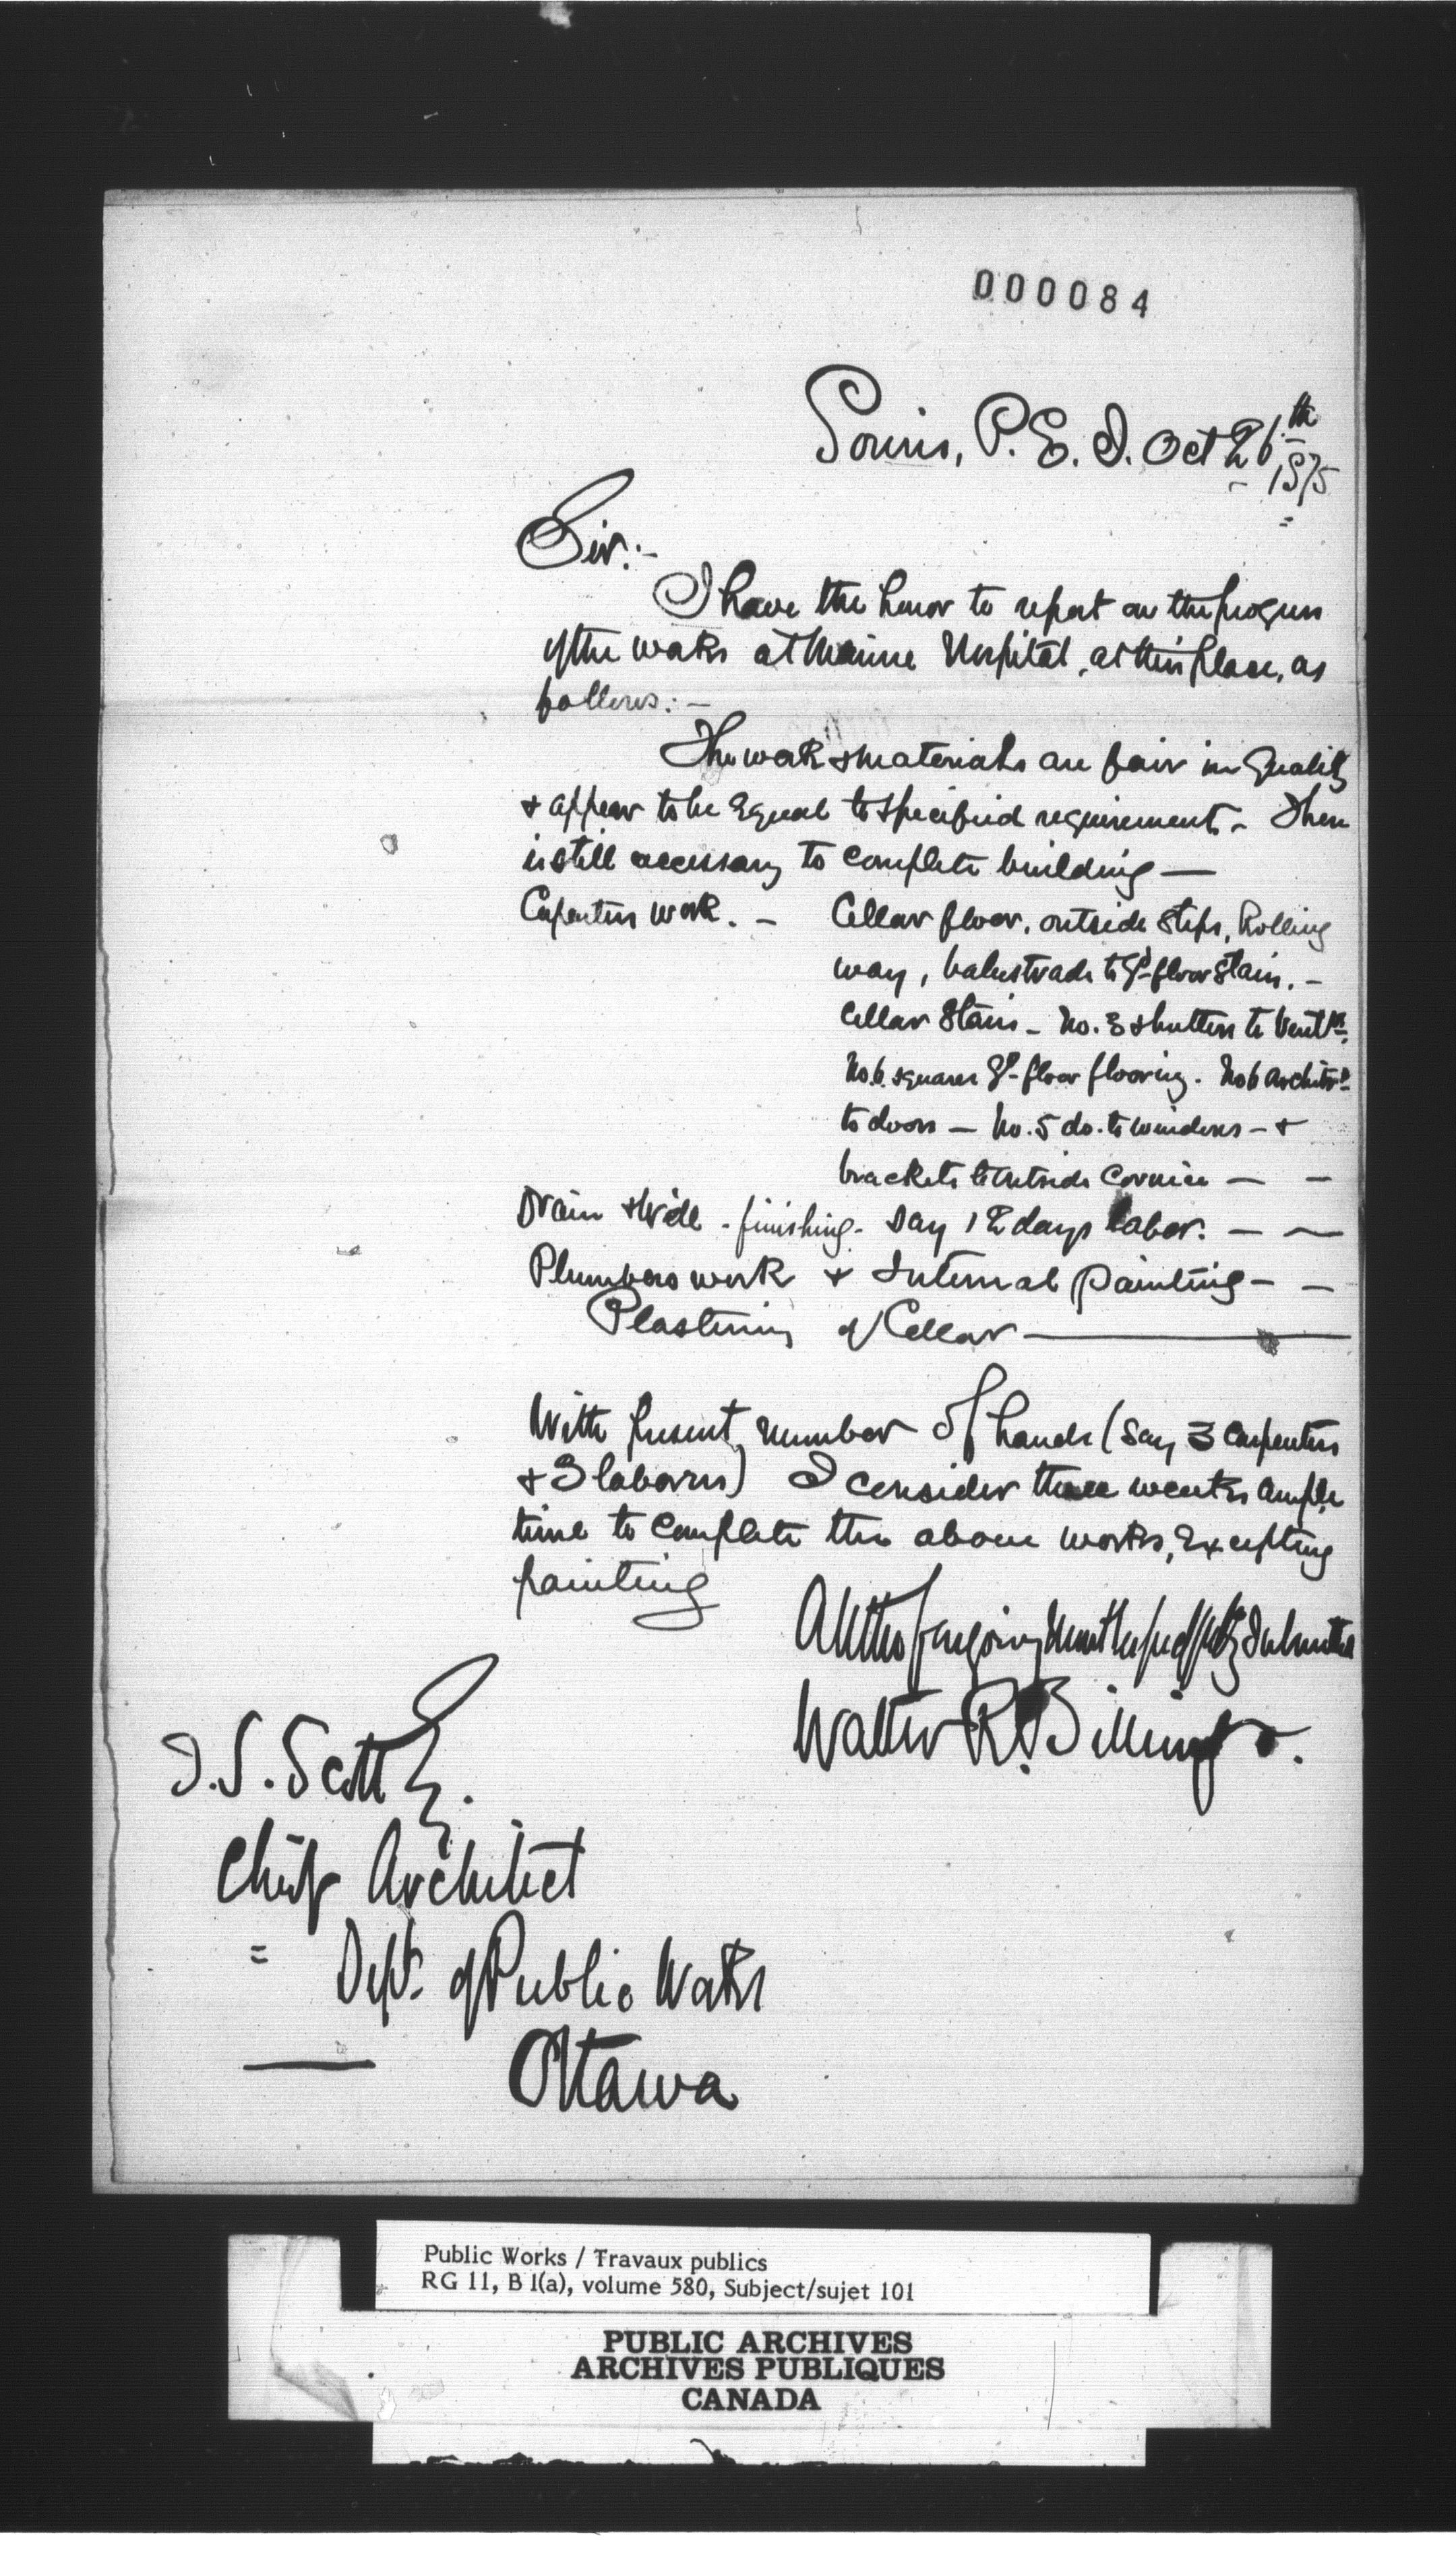 000084
Souris, P. E. I. Oct 26th
1875
Sir:-
I have the honor to report on the progress
of the works at Marine Hospital, at this place, as
follows: —
The work & materials are fair in quality
& appear to be Equal to specified requirements - There
is still necessary to complete building —
Carpenters work. - Cellar floor, outside steps, Rolling
way, balustrade to Gd floor Stairs. -
Cellar Stairs - No. 3 shutters to Ventrs.
No. 6 squares Gd floor flooring. No 6 Archits
to doors — No. 5 do. to windows - &
brackets to outside Cornice — —
Drain - finishing - Say 12 days labor. — ~
Plumbers work & Internal painting - —
Plastering of Cellar —
With present number of hands (Say 3 Carpenters
& 3 laborers) I consider three weeks ample
time to Complete the above works, Excepting
painting
All the foregoing Submitted
Walter R. Billings.
T. S. Scott Esq.
Chief Architect
= Dept. of Public Works
Ottawa
Public Works / Travaux publics
RG 11, B 1(a), volume 580, Subject/sujet 101
PUBLIC ARCHIVES
ARCHIVES PUBLIQUES
CANADA